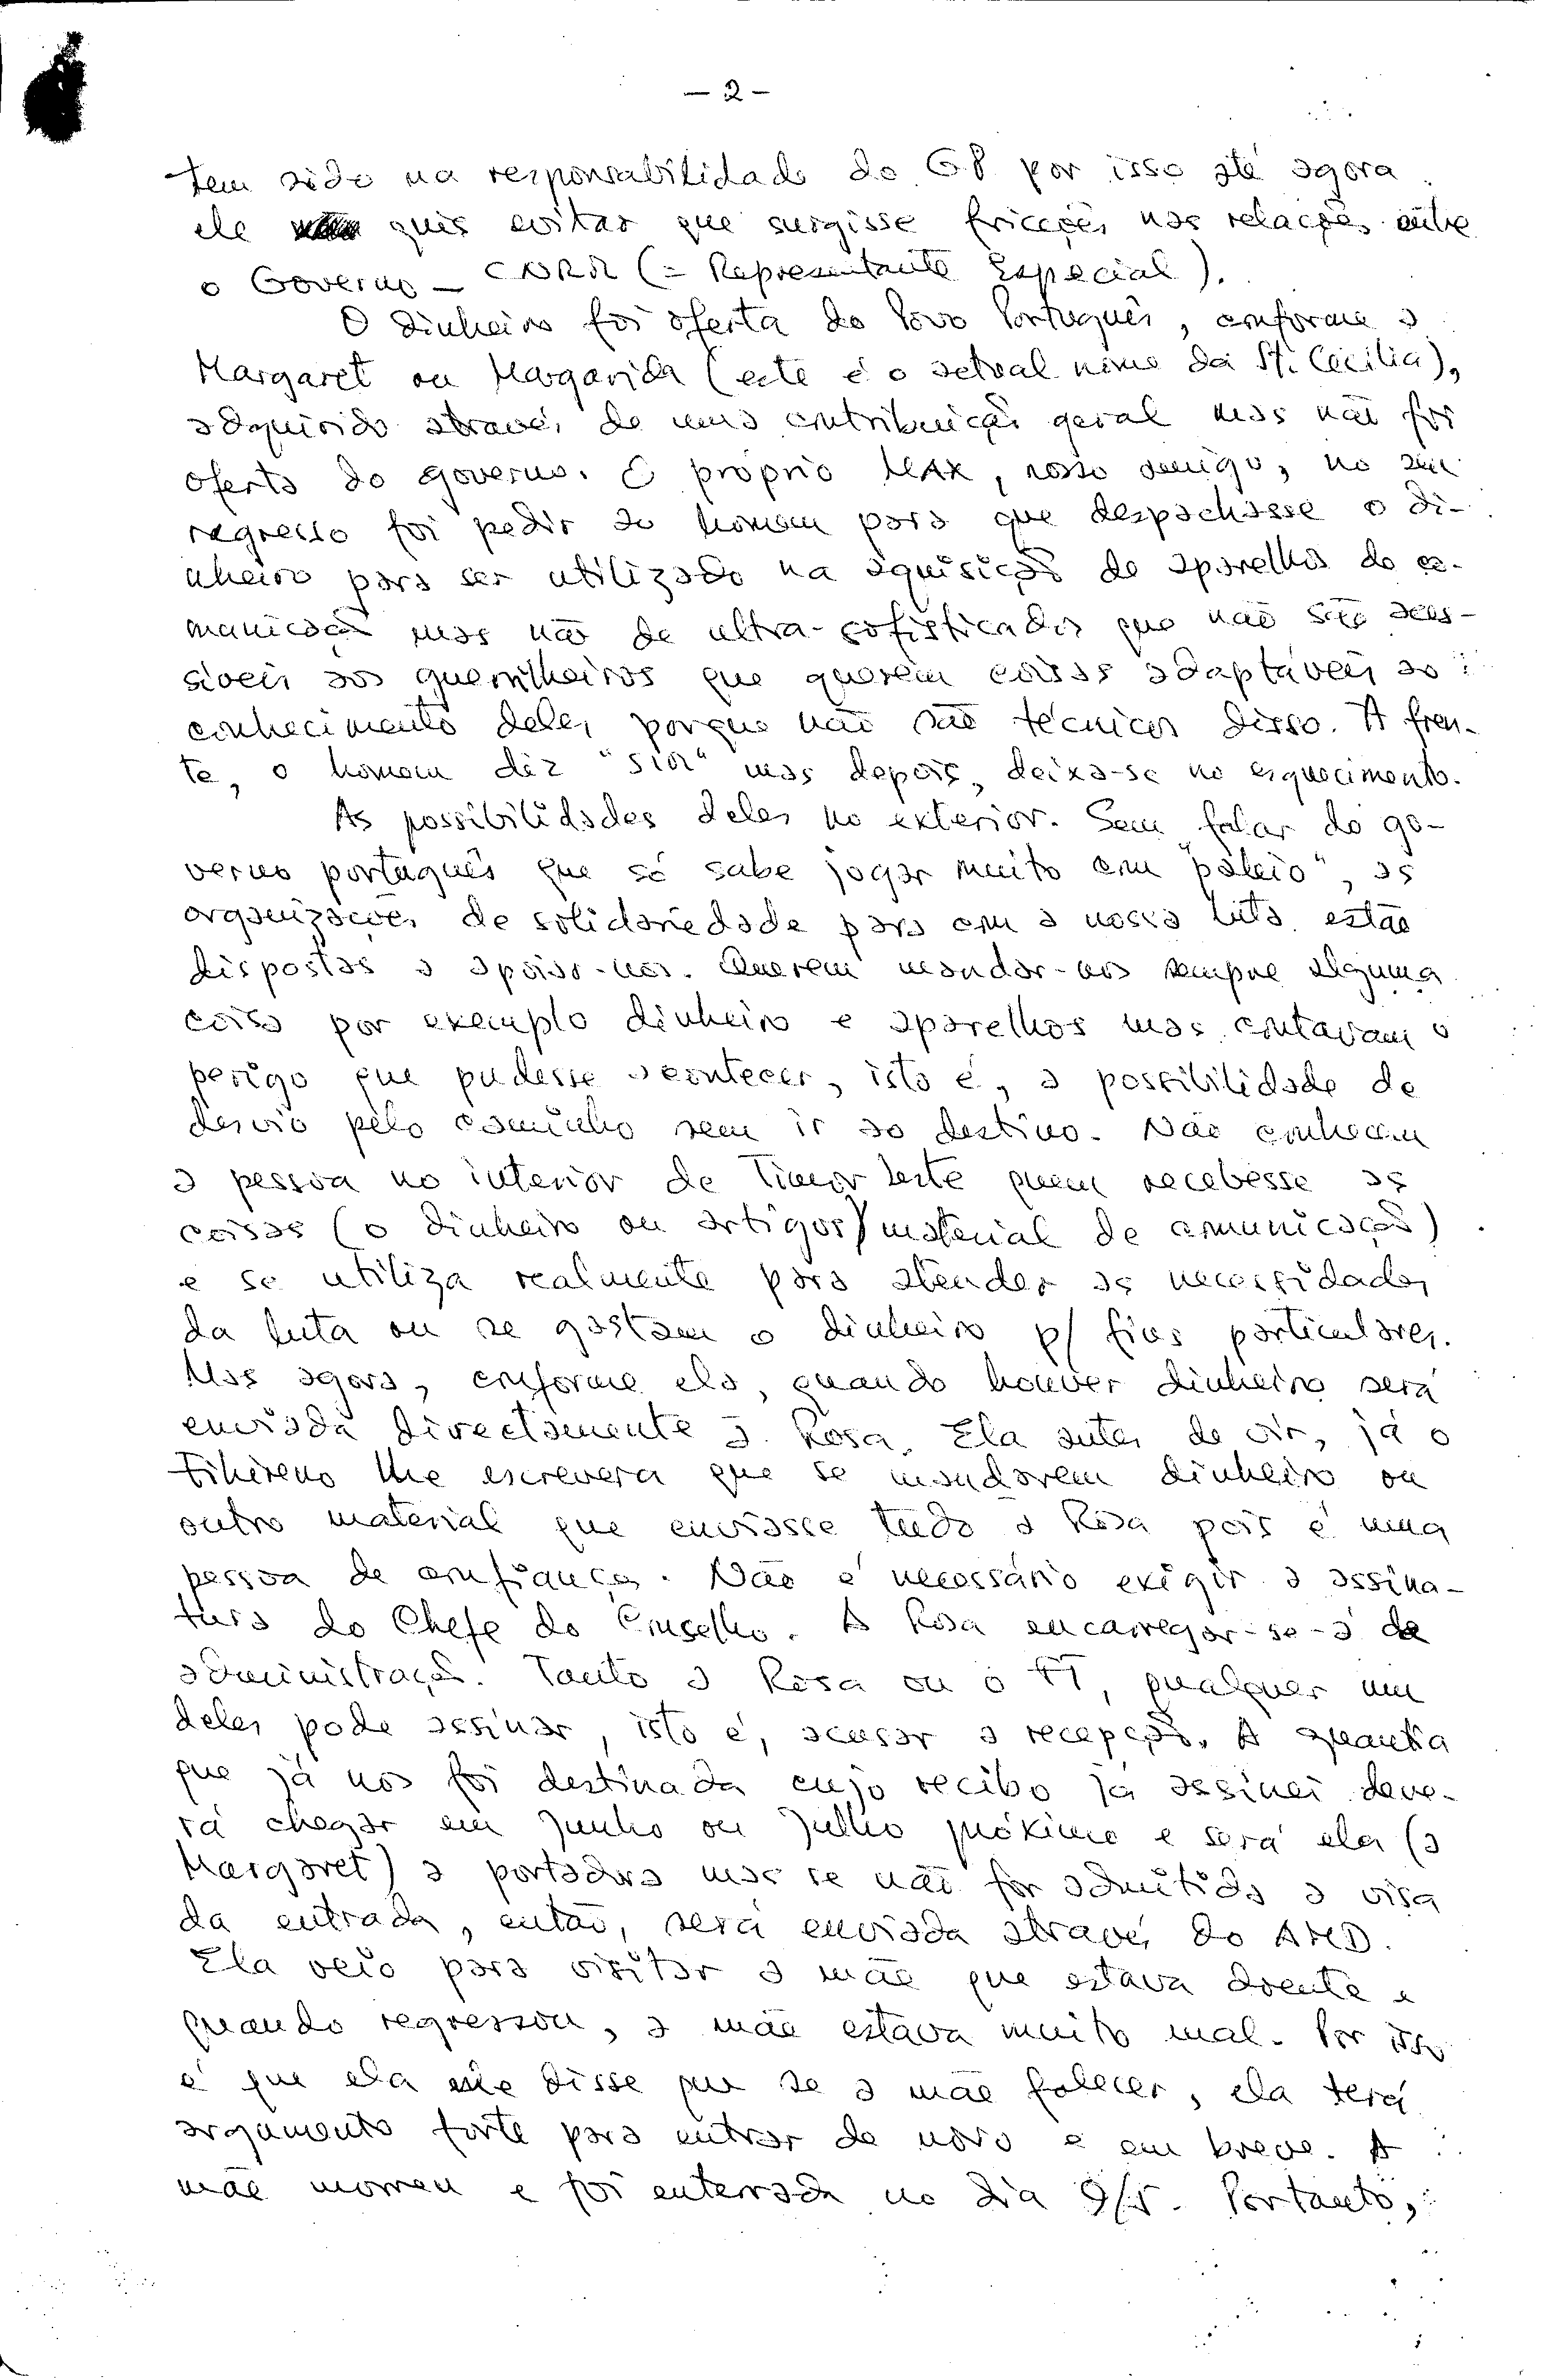 — 2 —
tem sido na responsabilidade do GP por isso até agora
ele quis evitar que surgisse fricções nas relações entre
o Governo — CNRM (= Representante Especial).
O dinheiro foi oferta do Povo Português, conforme a
Margaret ou Margarida (este é o actual nome da St. Cecilia),
adquirido através de uma contribuição geral mas não foi
oferta do governo. O próprio MAX, nosso amigo, no seu
regresso foi pedir ao homem para que despachasse o di-
nheiro para ser utilizado na aquisição de aparelhos de co-
municação mas não de ultra-sofisticados que não são aces-
síveis aos guerrilheiros que querem coisas adaptáveis ao
conhecimento deles porque não são técnicos disso. À fren-
te, o homem diz "sim" mas depois, deixa-se no esquecimento.
As possibilidades deles no exterior. Sem falar do go-
verno português que só sabe jogar muito com "paleio", as
organizações de solidariedade para com a nossa luta estão
dispostas a apoiar-nos. Querem mandar-nos sempre alguma
coisa por exemplo dinheiro e aparelhos mas contavam o
perigo que pudesse acontecer, isto é, a possibilidade de
desvio pelo caminho sem ir ao destino. Não conhecem
a pessoa no interior de Timor Leste quem recebesse as
coisas (o dinheiro ou artigos/material de comunicação)
e se utiliza realmente para atender as necessidades
da luta ou se gastam o dinheiro p/ fins particulares.
Mas agora, conforme ela, quando houver dinheiro será
enviada directamente à Rosa. Ela antes de vir, já o
Filireno lhe escrevera que se mandarem dinheiro ou
outro material que enviasse tudo à Rosa pois é uma
pessoa de confiança. Não é necessário exigir a assina-
tura do Chefe do Conselho. A Rosa encarregar-se-á da
administração. Tanto a Rosa ou o FT, qualquer um
deles pode assinar, isto é, acusar a recepção. A quantia
que já nos foi destinada cujo recibo já assinei deve-
rá chegar em Junho ou Julho próximo e será ela (a
Margaret) a portadora mas se não for admitida a visa
da entrada, então, será enviada através do AMD.
Ela veio para visitar a mãe que estava doente e
quando regressou, a mãe estava muito mal. Por isso
é que ela me disse que se a mãe falecer, ela terá
argumento forte para entrar de novo e em breve. A
mãe morreu e foi enterrada no dia 9/5. Portanto,